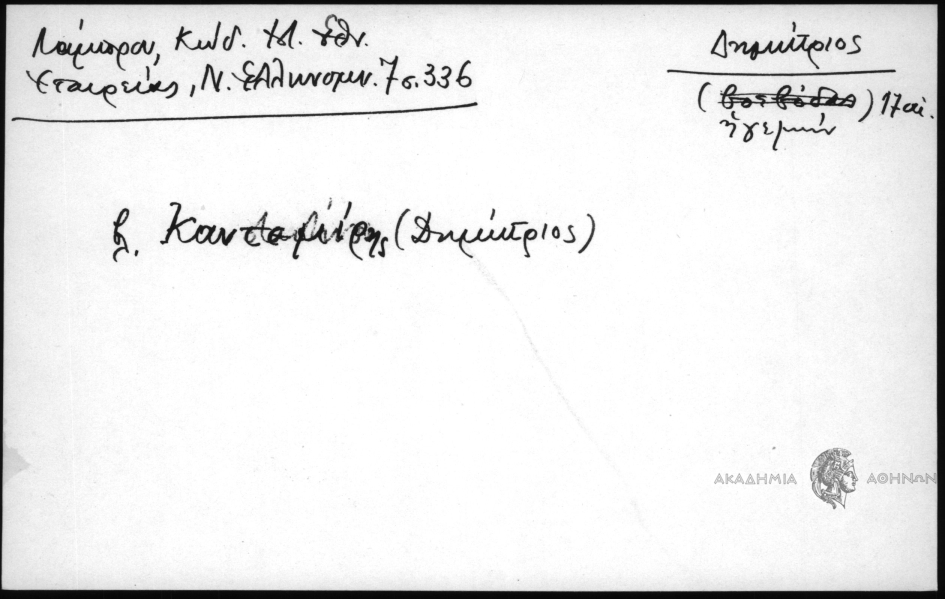 Λάμπρου, Κώδ. Ἱστ. Ἐθν.
Ἑταιρείας, Ν. Ἑλληνομν. 7 σ. 336
Δημήτριος
(βοεβόδας) 17 αἰ.
ἡγεμών
βλ. Καντεμίρης (Δημήτριος)
ΑΚΑΔΗΜΙΑ ΑΘΗΝΩΝ